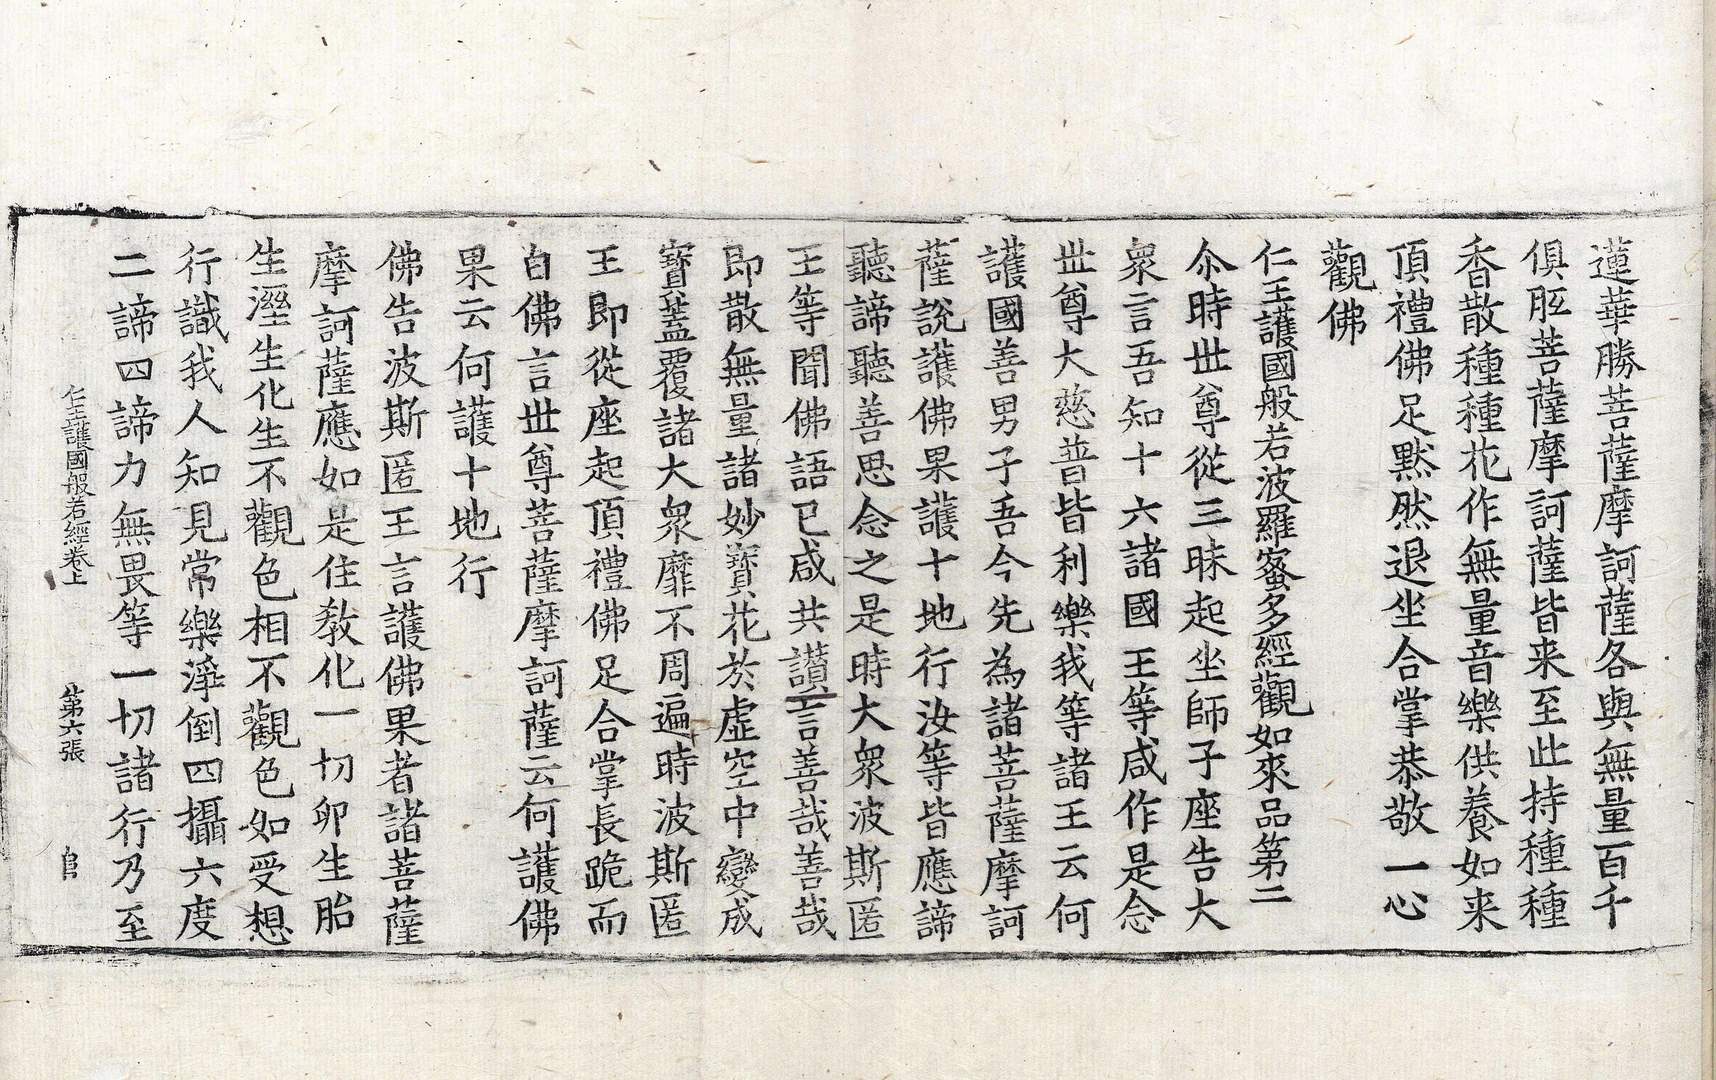 蓮華勝菩薩摩訶薩各與無量百千
俱胝菩薩摩訶薩皆来至此持種種
香散種種花作無量音樂供養如来
頂禮佛足黙然退坐合掌恭敬一心
觀佛
仁王護國般若波羅蜜多經觀如來品第二
尒時世尊從三昧起坐師子座告大
衆言吾知十六諸國王等咸作是念
世尊大慈普皆利樂我等諸王云何
護國善男子吾今先為諸菩薩摩訶
薩說護佛果護十地行汝等皆應諦
聽諦聽善思念之是時大衆波斯匿
王等聞佛語已咸共讃言善哉善哉
即散無量諸妙寶花於虛空中變成
寶蓋覆諸大衆靡不周遍時波斯匿
王即從座起頂禮佛足合掌長跪而
白佛言世尊菩薩摩訶薩云何護佛
果云何護十地行
佛告波斯匿王言護佛果者諸菩薩
摩訶薩應如是住教化一切卵生胎
生濕生化生不觀色相不觀色如受想
行識我人知見常樂淨倒四攝六度
二諦四諦力無畏等一切諸行乃至
仁王護國般若經卷上 第六張